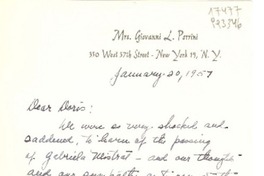 17477
923346
Mrs. Giovanni L. Perrini
330 West 57th Street - New York 19, N.Y.
January 20, 1957
Dear Doris:
We were so very shocked and
saddened, to learn of the passing
of Gabriela Mistral - and our thoughts
and our